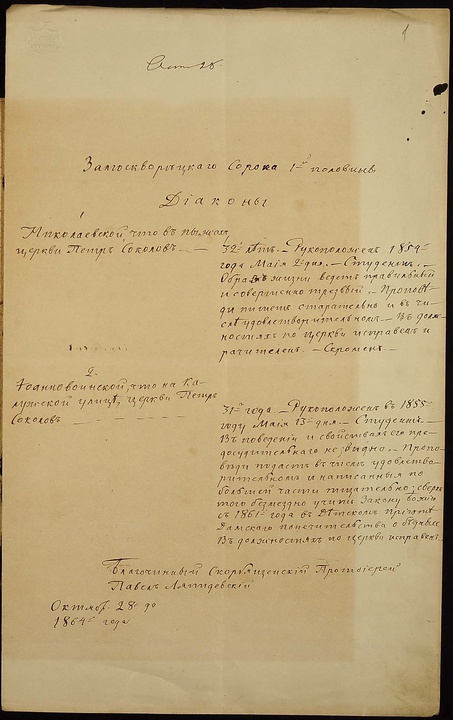 1
Замоскворѣцкаго Сорока 1й половины
Діаконы
1
Николаевской, что въ пыжахъ,
церкви Петръ Соколовъ —
32 лѣтъ. — Рукоположенъ 1854
года Маія 2 дня. — Студентъ. —
Образъ жизни ведетъ правильный
и совершенно трезвый. — Пропові-
ди пишетъ старательно и въ чи-
слѣ удовлетворительномъ. — Въ долж-
ностяхъ по церкви исправенъ и
рачителенъ. — Скроменъ. —
2.
Іоанновоинской, что на Ка-
лужской улицѣ, церкви Петръ
Соколовъ — — —
31 года. — Рукоположенъ въ 1855
году Маія 13 дня. — Студентъ. —
Въ поведеніи и свойствахъ его пре-
досудительнаго не видно. — Пропо-
вѣди подаетъ въ числѣ удовлетво-
рительномъ и написанныя по
большей части тщательно; сверхъ
того безмездно учитъ Закону божію
съ 1861 года въ Дѣтскомъ пріютѣ
Дамскаго попечительства о бѣдныхъ
Въ должностяхъ по церкви исправенъ.
Благочинный Скорбященскій Протоіерей
Павелъ Ляпидевскій
Октяб. 28 дня
1864 года